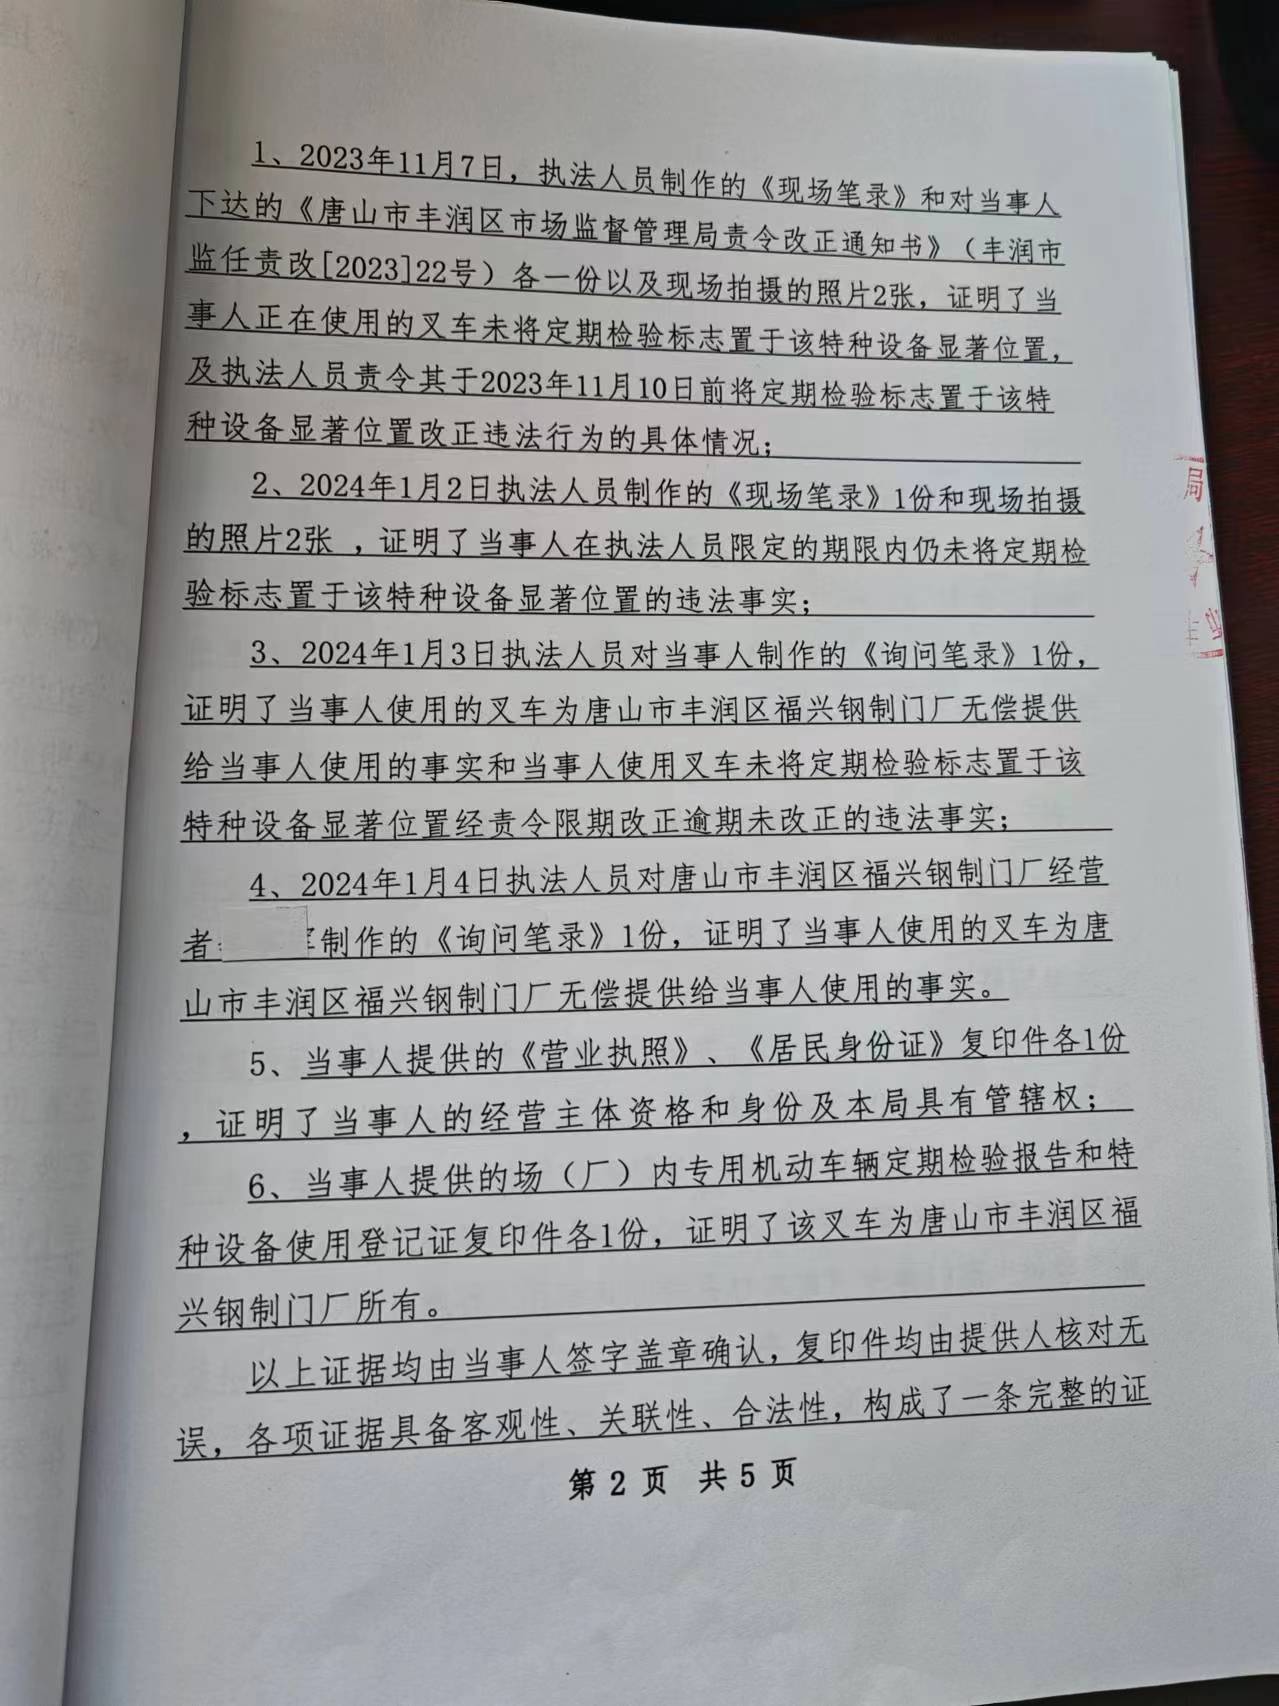 1、2023年11月7日，执法人员制作的《现场笔录》和对当事人
下达的《唐山市丰润区市场监督管理局责令改正通知书》（丰润市
监任责改[2023]22号）各一份以及现场拍摄的照片2张，证明了当
事人正在使用的叉车未将定期检验标志置于该特种设备显著位置，
及执法人员责令其于2023年11月10日前将定期检验标志置于该特
种设备显著位置改正违法行为的具体情况；
2、2024年1月2日执法人员制作的《现场笔录》1份和现场拍摄
的照片2张 ，证明了当事人在执法人员限定的期限内仍未将定期检
验标志置于该特种设备显著位置的违法事实；
3、2024年1月3日执法人员对当事人制作的《询问笔录》1份，
证明了当事人使用的叉车为唐山市丰润区福兴钢制门厂无偿提供
给当事人使用的事实和当事人使用叉车未将定期检验标志置于该
特种设备显著位置经责令限期改正逾期未改正的违法事实；
4、2024年1月4日执法人员对唐山市丰润区福兴钢制门厂经营
者 制作的《询问笔录》1份，证明了当事人使用的叉车为唐
山市丰润区福兴钢制门厂无偿提供给当事人使用的事实。
5、当事人提供的《营业执照》、《居民身份证》复印件各1份
，证明了当事人的经营主体资格和身份及本局具有管辖权；
6、当事人提供的场（厂）内专用机动车辆定期检验报告和特
种设备使用登记证复印件各1份，证明了该叉车为唐山市丰润区福
兴钢制门厂所有。
以上证据均由当事人签字盖章确认，复印件均由提供人核对无
误，各项证据具备客观性、关联性、合法性，构成了一条完整的证
第 2 页 共 5 页
局